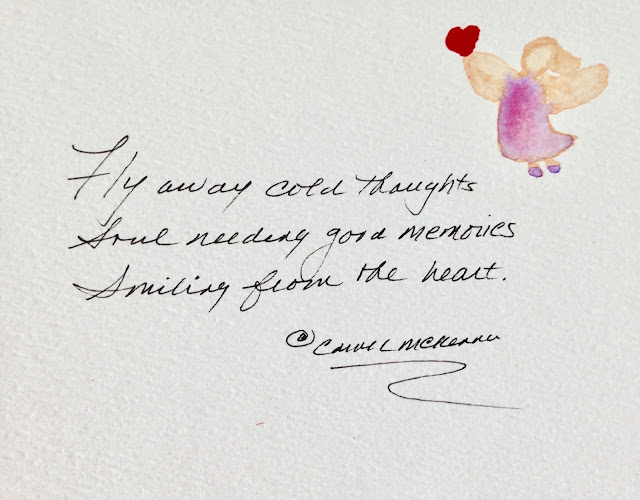 Fly away cold thoughts
Soul needing good memories
Smiling from the heart.
© Carol L McKenna